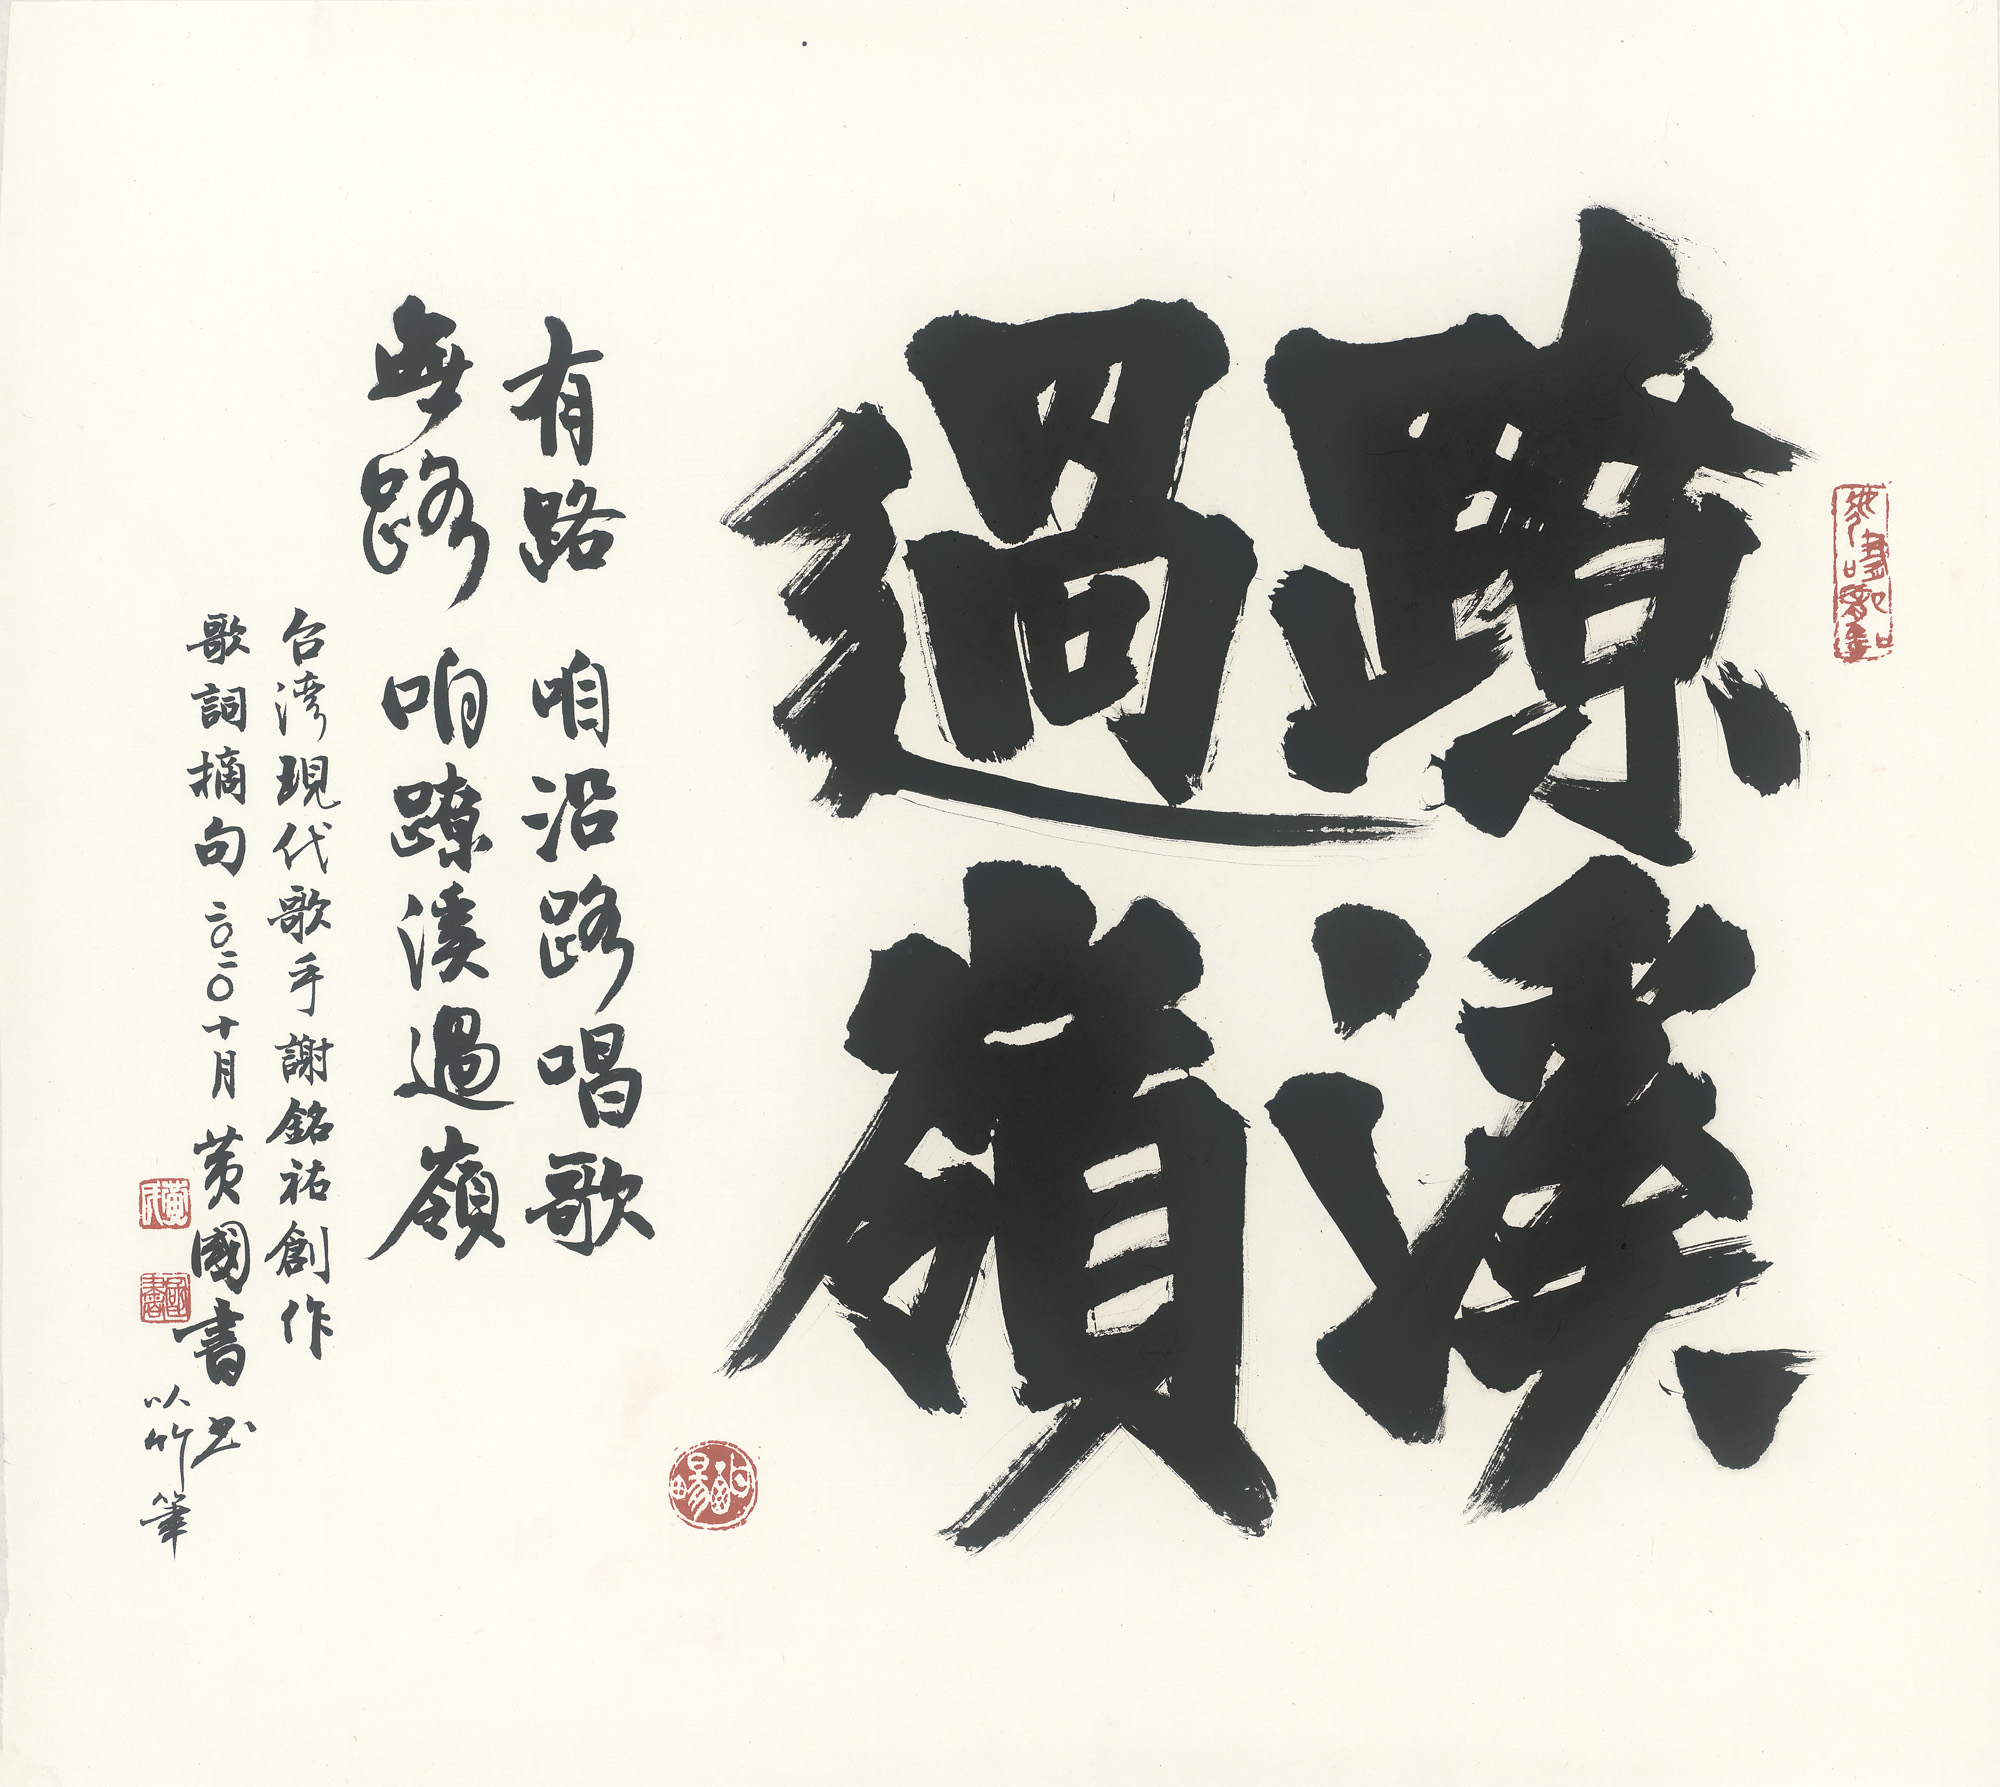 蹽溪
過嶺
有路 咱沿路唱歌
無路 咱蹽溪過嶺
台湾現代歌手謝銘祐創作
歌詞摘句 二〇二〇十月 黄國書书
以竹筆